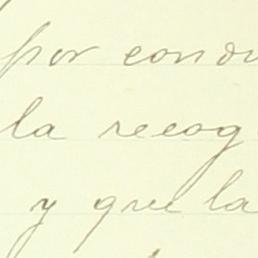 por condu
la recog
y que la